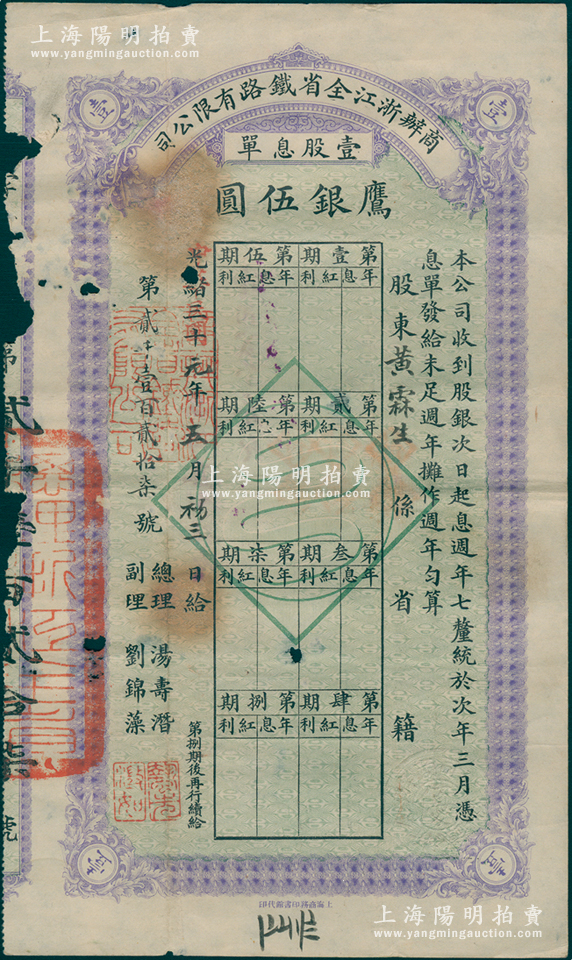 上海陽明拍賣
www.yangmingauction.com
上海陽明拍賣
www.yangmingauction.com
商辦浙江全省鐵路有限公司
壹股息單
壹
壹
鷹銀伍圓
本公司收到股銀次日起息週年七釐統於次年三月憑
息單發給未足週年攤作週年勻算
股東黃霖生係省籍
第壹期
年息紅利
第貳期
年息紅利
第叁期
年息紅利
第肆期
年息紅利
第伍期
年息紅利
第陸期
年息紅利
第柒期
年息紅利
第捌期
年息紅利
第捌期後再行續給
光緒三十元年五月初三日給
第貳千壹百貳拾柒號
總理湯壽潛
副理劉錦藻
壹
壹
上海商務印書館代印
上海陽明拍賣
www.yangmingauction.com
上海陽明拍賣
www.yangmingauction.com